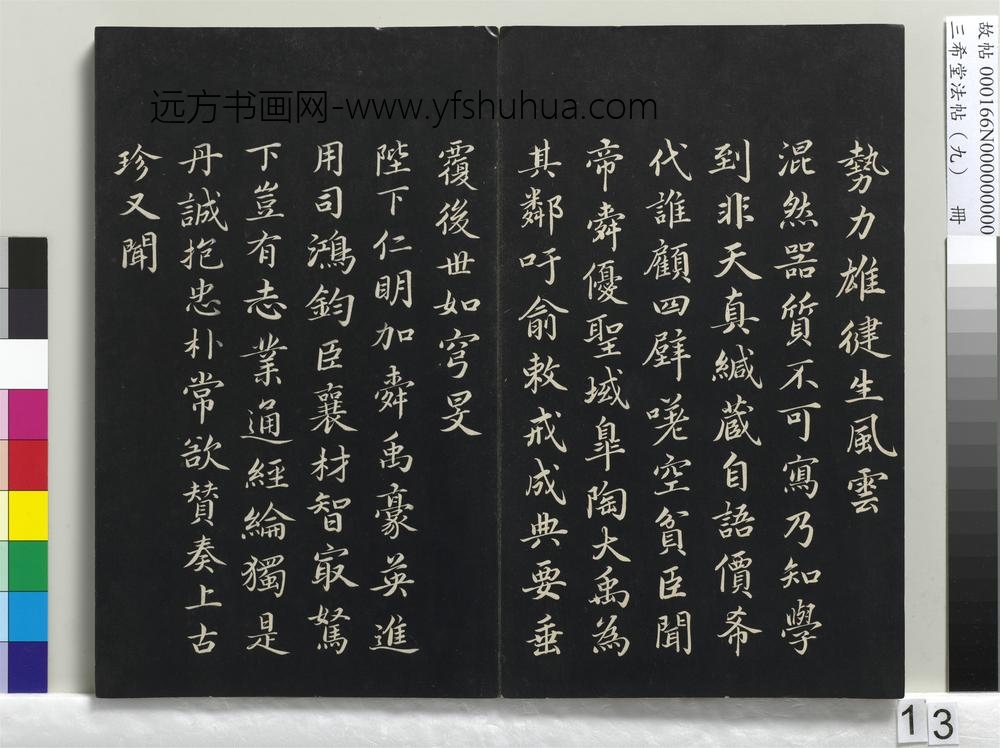 远方书画网-www.yfshuhua.com
勢力雄徤生風雲
混然器質不可寫乃知學
到非天真緘蔵自語價希
代誰顧四壁嗟空貧臣聞
帝舜優聖域皐陶大禹為
其鄰吁俞敕戒成典要垂
覆後世如穹旻
陛下仁明加舜禹豪英進
用司鴻鈞臣襄材智㝡駑
下豈有志業通經綸獨是
丹誠抱忠朴常欲賛奏上古
珍又聞
故帖 000166N000000000
三希堂法帖(九) 冊
13